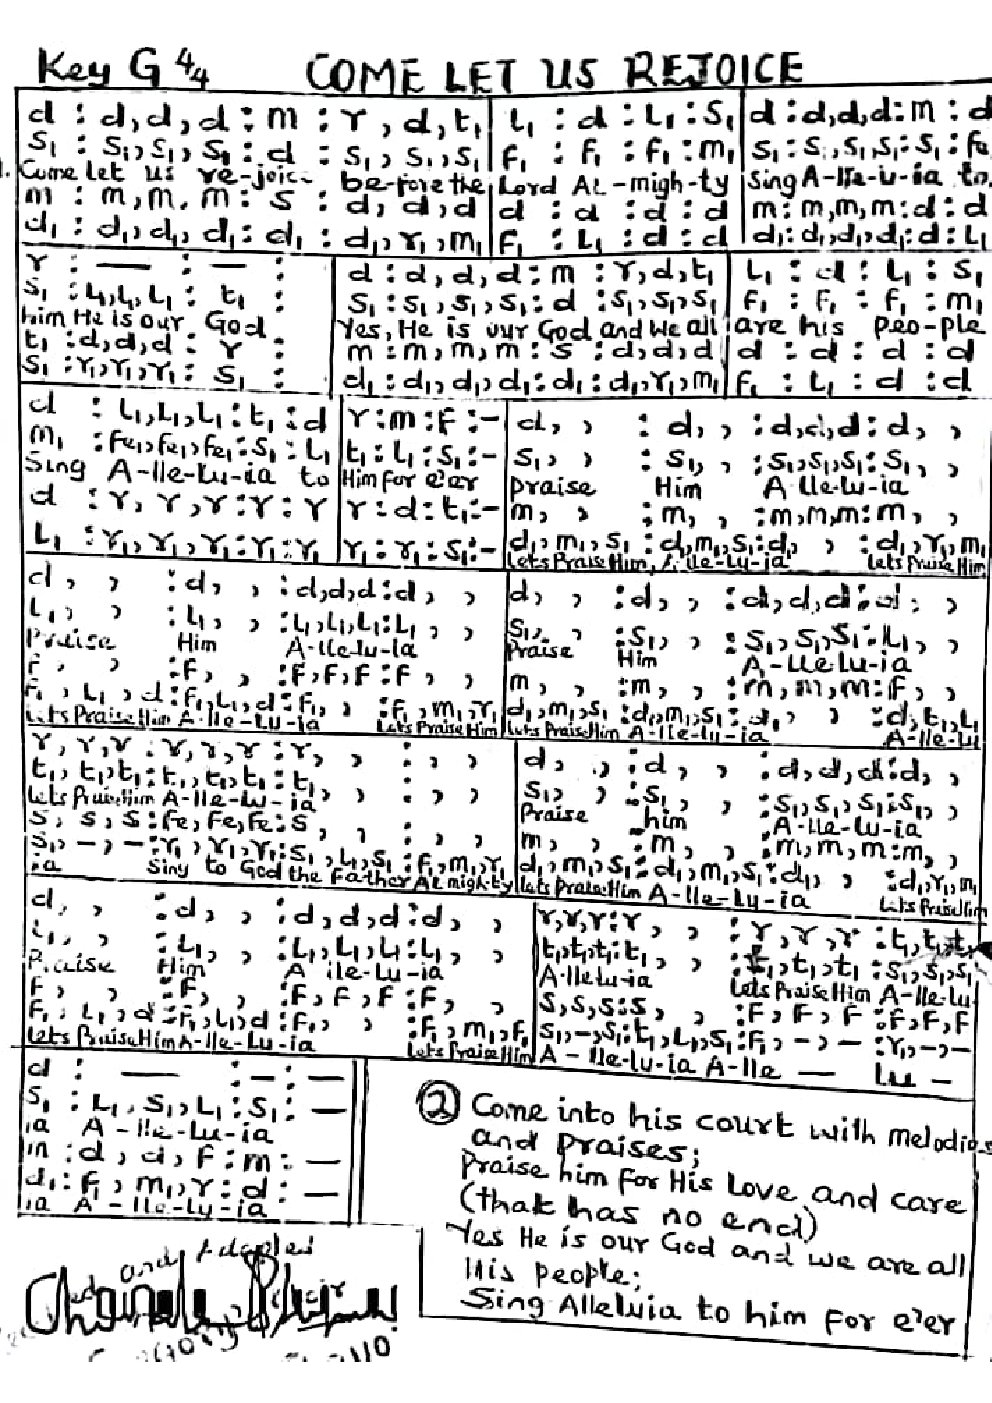 Key G 4/4 COME LET US REJOICE
d : d,d,d : m : r,d,t₁ | L₁ : d : L₁ : S₁ | d : d,d,d : m : d
S₁ : S₁,S₁,S₁ : d : S₁,S₁,S₁ | F₁ : F₁ : F₁ : m₁ | S₁ : S₁,S₁,S₁ : S₁ : fe
1. Come let us re-joice be-fore the Lord AL-migh-ty Sing A-lle-lu-ia to
m : m,m,m : S : d,d,d | d : d : d : d | m : m,m,m : d : d
d₁ : d₁,d₁,d₁ : d₁ : d₁,r₁,m₁ | F₁ : L₁ : d : d | d₁ : d₁,d₁,d₁ : d : L₁
r : — : — : | d : d,d,d : m : r,d,t₁ | L₁ : d : L₁ : S₁
S₁ : L₁,L₁,L₁ : t₁ : | S₁ : S₁,S₁,S₁ : d : S₁,S₁,S₁ | F₁ : F₁ : F₁ : m₁
him He is our God Yes, He is our God and we all are his peo-ple
t₁ : d,d,d : r : | m : m,m,m : S : d,d,d | d : d : d : d
S₁ : r₁,r₁,r₁ : S₁ : | d₁ : d₁,d₁,d₁ : d₁ : d₁,r₁,m₁ | F₁ : L₁ : d : d
d : L₁,L₁,L₁ : t₁ : d | r : m : F : - | d, , : d, , : d,d,d : d, ,
m₁ : Fe₁,Fe₁,Fe₁ : S₁ : L₁ | t₁ : L₁ : S₁ : - | S₁, , : S₁, , : S₁,S₁,S₁ : S₁, ,
Sing A-lle-Lu-ia to Him for e'er praise Him A lle-lu-ia
d : r,r,r : r : r | r : d : t₁ : - | m, , : m, , : m,m,m : m, ,
L₁ : r₁,r₁,r₁ : r₁ : r₁ | r₁ : r₁ : S₁ : - | d₁,m₁,S₁ : d₁,m₁,S₁ : d₁, , : d₁,r₁,m₁
Lets Praise Him, A-lle-Lu-ia Lets Praise Him
d, , : d, , : d,d,d : d, , | d, , : d, , : d,d,d : d, ,
L₁, , : L₁, , : L₁,L₁,L₁ : L₁, , | S₁, , : S₁, , : S₁,S₁,S₁ : L₁, ,
Praise Him A-lle-lu-ia Praise Him A-lle Lu-ia
F, , : F, , : F,F,F : F, , | m, , : m, , : m,m,m : F, ,
F₁,L₁,d : F₁,L₁,d : F₁, , : F₁,m₁,r₁ | d₁,m₁,S₁ : d₁,m₁,S₁ : d₁, , : d,t₁,L₁
Lets Praise Him A-lle-Lu-ia Lets Praise Him Lets Praise Him A-lle-Lu-ia A-lle-Lu
r,r,r : r,r,r : r, , : , , | d, , : d, , : d,d,d : d, ,
t₁,t₁,t₁ : t₁,t₁,t₁ : t₁, , : , , | S₁, , : S₁, , : S₁,S₁,S₁ : S₁, ,
Lets Praise Him A-lle-Lu-ia Praise him A-lle-Lu-ia
S,S,S : Fe,Fe,Fe : S, , : , , | m, , : m, , : m,m,m : m, ,
S₁,-,- : r₁,r₁,r₁ : S₁,L₁,S₁ : F₁,m₁,r₁ | d₁,m₁,S₁ : d₁,m₁,S₁ : d₁, , : d₁,r₁,m₁
ia Sing to God the Father AL migh-ty Lets Praise Him A-lle-Lu-ia Lets Praise Him
d, , : d, , : d,d,d : d, , | r,r,r : r, , : r,r,r : t₁,t₁,t₁
L₁, , : L₁, , : L₁,L₁,L₁ : L₁, , | t₁,t₁,t₁ : t₁, , : t₁,t₁,t₁ : S₁,S₁,S₁
Praise Him A lle-lu-ia A-lle lu-ia Lets Praise Him A-lle-Lu-
F, , : F, , : F,F,F : F, , | S,S,S : S, , : F,F,F : F,F,F
F₁,L₁,d : F₁,L₁,d : F₁, , : F₁,m₁,F₁ | S₁,-,S₁ : t₁,L₁,S₁ : F₁,-,- : r₁,-,-
Lets Praise Him A-lle-Lu-ia Lets Praise Him A-lle-lu-ia A-lle — Lu —
d : — : — : —
S₁ : L₁,S₁,L₁ : S₁ : —
ia A-lle-Lu-ia
m : d,d,F : m : —
d₁ : F₁,m₁,r : d : —
ia A-lle-Lu-ia
② Come into his court with melodies
and praises;
Praise him for His Love and care
(that has no end)
Yes He is our God and we are all
His people;
Sing Alleluia to him for e'er
and Adapted